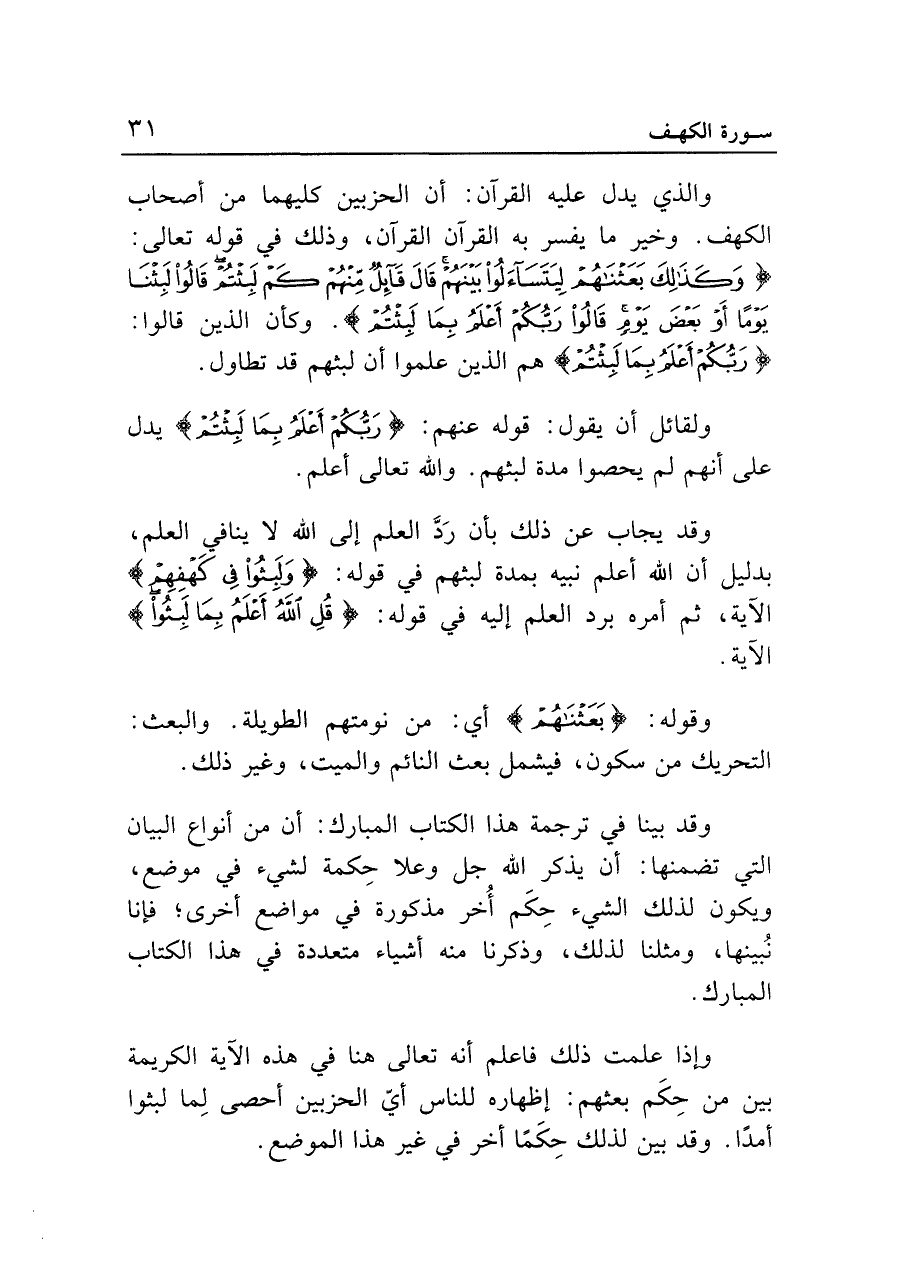 سورة الكهف ٣١
والذي يدل عليه القرآن: أن الحزبين كليهما من أصحاب
الكهف. وخير ما يفسر به القرآن القرآن، وذلك في قوله تعالى:
﴿ وَكَذَٰلِكَ بَعَثْنَٰهُمْ لِيَتَسَآءَلُوا۟ بَيْنَهُمْ ۚ قَالَ قَآئِلٌ مِّنْهُمْ كَمْ لَبِثْتُمْ ۖ قَالُوا۟ لَبِثْنَا
يَوْمًا أَوْ بَعْضَ يَوْمٍ ۚ قَالُوا۟ رَبُّكُمْ أَعْلَمُ بِمَا لَبِثْتُمْ ﴾. وكأن الذين قالوا:
﴿ رَبُّكُمْ أَعْلَمُ بِمَا لَبِثْتُمْ ﴾ هم الذين علموا أن لبثهم قد تطاول.
ولقائل أن يقول: قوله عنهم: ﴿ رَبُّكُمْ أَعْلَمُ بِمَا لَبِثْتُمْ ﴾ يدل
على أنهم لم يحصوا مدة لبثهم. والله تعالى أعلم.
وقد يجاب عن ذلك بأن رَدَّ العلم إلى الله لا ينافي العلم،
بدليل أن الله أعلم نبيه بمدة لبثهم في قوله: ﴿ وَلَبِثُوا۟ فِى كَهْفِهِمْ ﴾
الآية، ثم أمره برد العلم إليه في قوله: ﴿ قُلِ ٱللَّهُ أَعْلَمُ بِمَا لَبِثُوا۟ ۖ ﴾
الآية.
وقوله: ﴿ بَعَثْنَٰهُمْ ﴾ أي: من نومتهم الطويلة. والبعث:
التحريك من سكون، فيشمل بعث النائم والميت، وغير ذلك.
وقد بينا في ترجمة هذا الكتاب المبارك: أن من أنواع البيان
التي تضمنها: أن يذكر الله جل وعلا حِكمة لشيء في موضع،
ويكون لذلك الشيء حِكَم أُخر مذكورة في مواضع أخرى؛ فإنا
نُبينها، ومثلنا لذلك، وذكرنا منه أشياء متعددة في هذا الكتاب
المبارك.
وإذا علمت ذلك فاعلم أنه تعالى هنا في هذه الآية الكريمة
بين من حِكَم بعثهم: إظهاره للناس أيّ الحزبين أحصى لِما لبثوا
أمدًا. وقد بين لذلك حِكَمًا أخر في غير هذا الموضع.